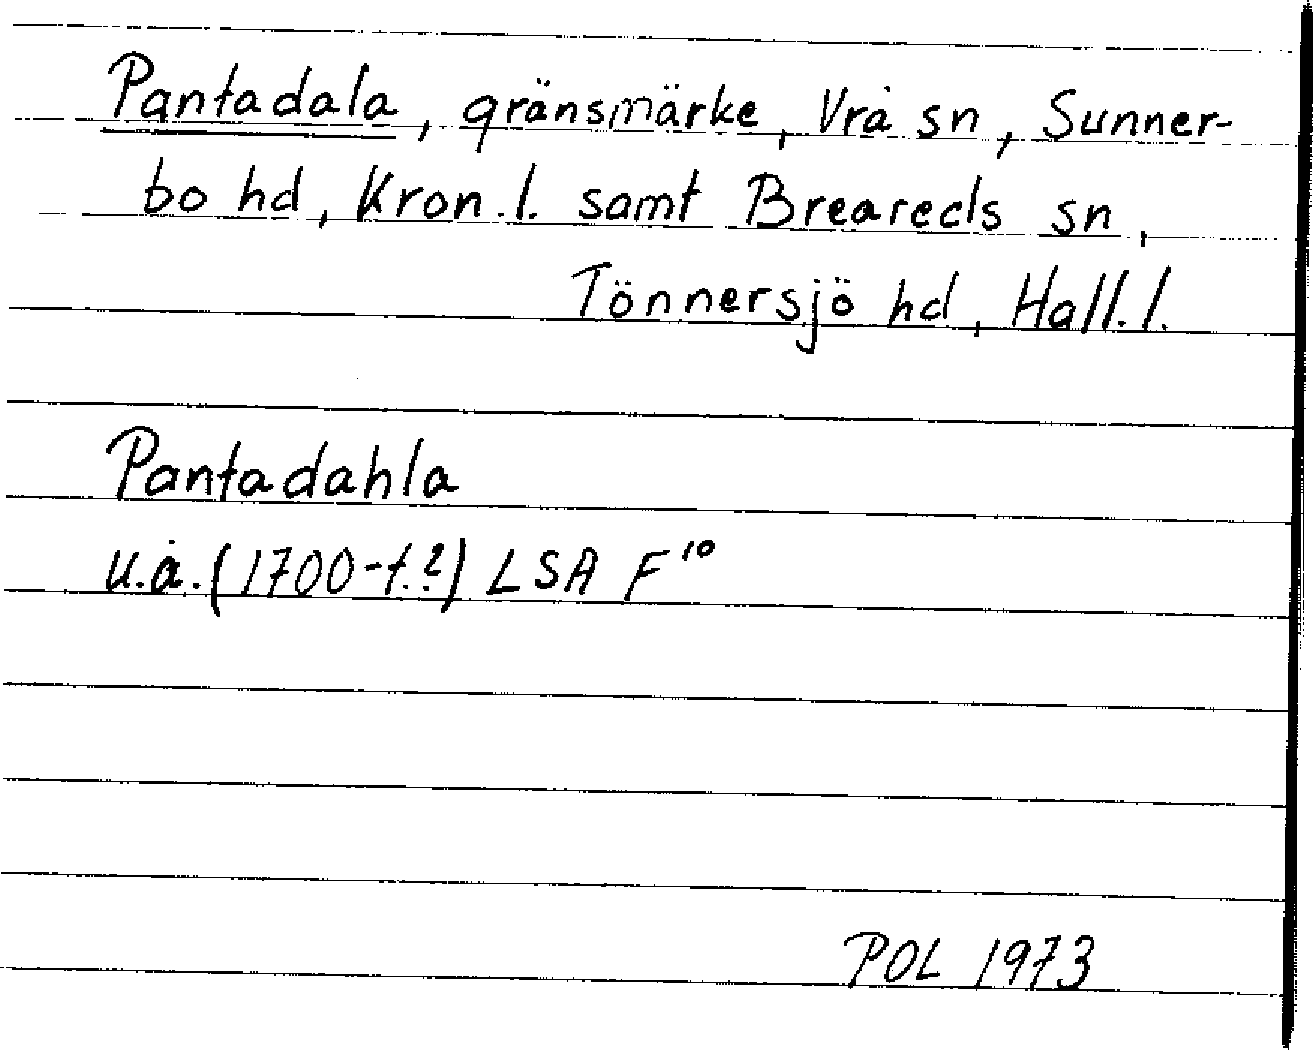 Pantadala, gränsmärke, Vrå sn, Sunner-
bo hd, Kron.l. samt Breareds sn,
Tönnersjö hd, Hall.l.
Pantadahla
u.å. (1700-t.?) LSA F¹⁰
POL 1973